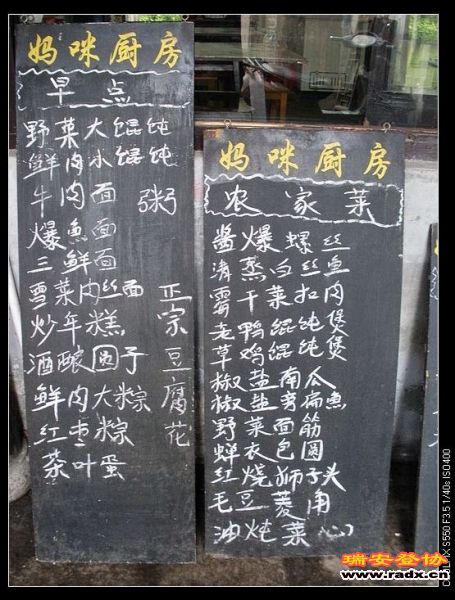 妈咪厨房
早点
野菜大馄饨
鲜肉小馄饨
牛肉面
爆魚面
三鲜面
雪菜肉丝面
炒年糕
酒酿圆子
鲜肉大粽
红枣粽
茶叶蛋
粥
正宗豆腐花
妈咪厨房
农家菜
酱爆螺丝
清蒸白丝鱼
霉干菜扣肉
老鸭馄饨煲
草鸡馄饨煲
椒盐南瓜
椒盐旁偏魚
野菜面筋
蝉衣包圆
红烧狮子头
毛豆菱角
油炖菜心
S550 F3.5 1/40s ISO400
瑞安登协
www.radx.cn